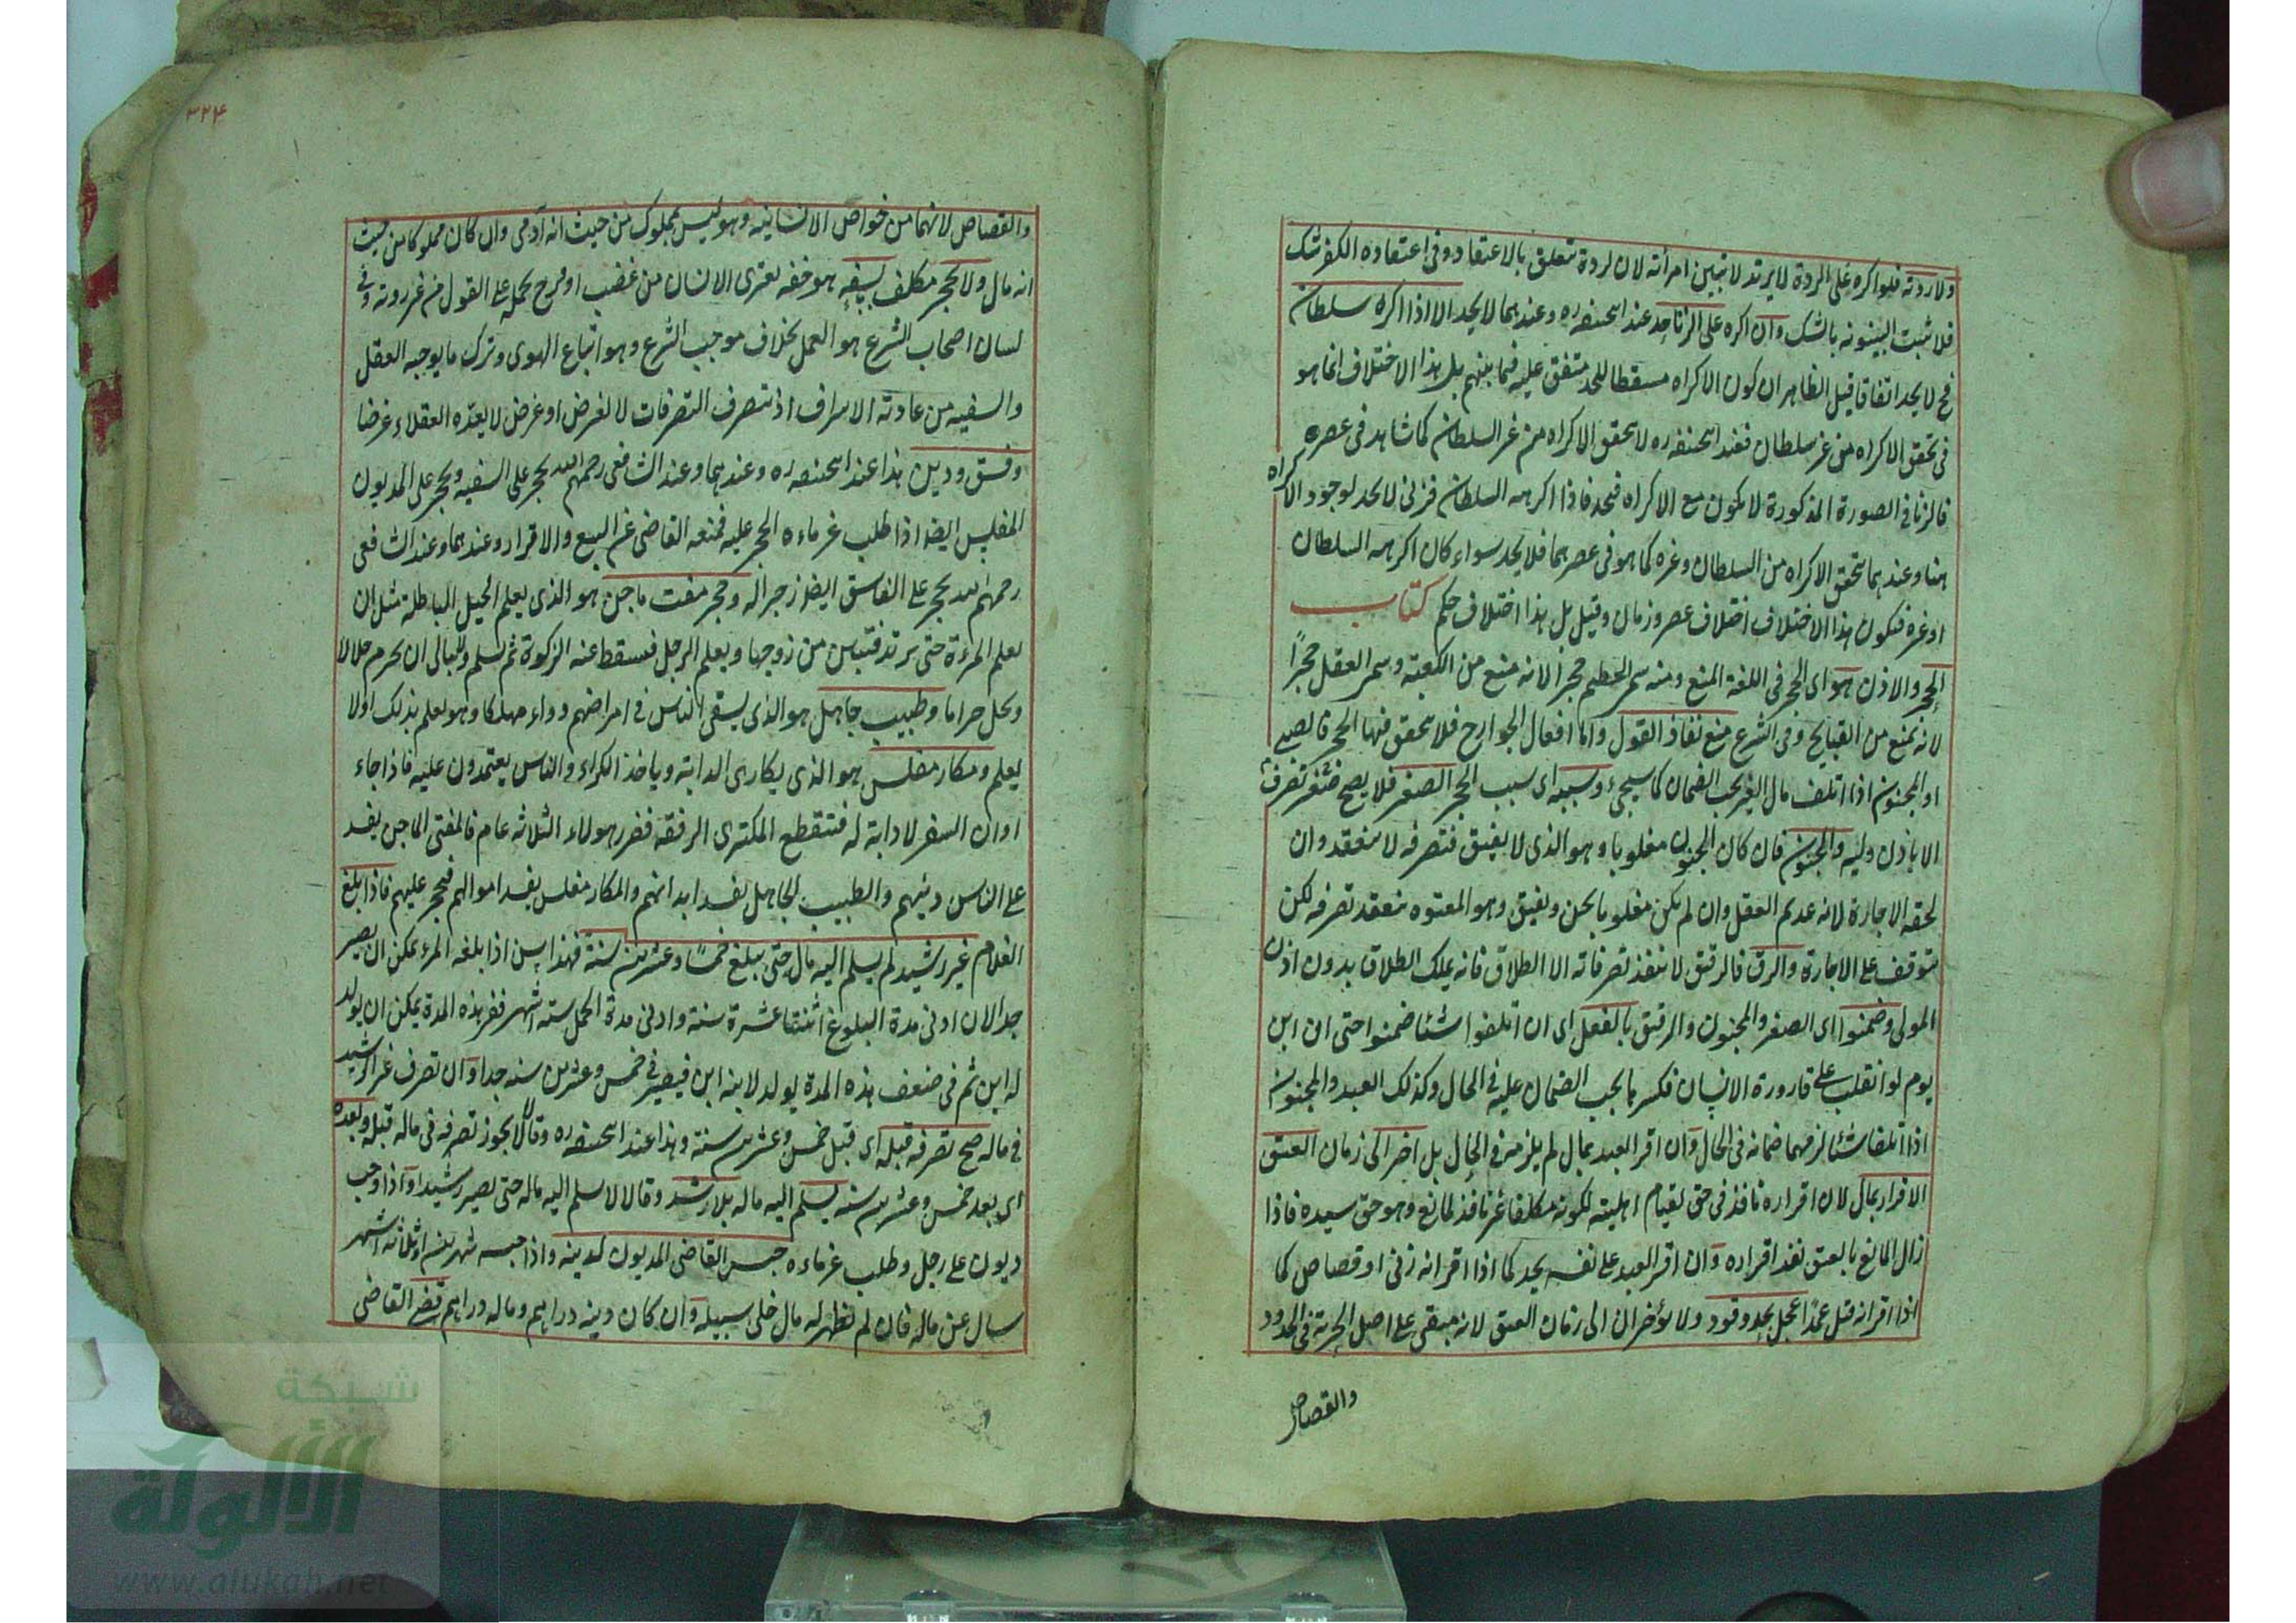 ولا ردته فلو اكره على الردة لا يرتد لا تبين امرأته لان لردة تتعلق بالاعتقاد وفى اعتقاده الكفر شك
فلا تثبت البينونه بالشك وان اكره على الزنا حد عند ابيحنيفه ره وعندهما لا يحد الا اذا اكره سلطان
فح لا يحد اتفاقا قيل الظاهر ان كون الاكراه مسقطا للحد متفق عليه فيما بينهم بل هذا الاختلاف انما هو
فى تحقق الاكراه من غير سلطان فعند ابيحنيفه ره لا يتحقق الاكراه من غير السلطان كما شاهد فى عصره
فالزنا فى الصورة المذكورة لا يكون مع الاكراه فيحد فاذا اكرهه السلطان فزنى لا يحد لوجود الاكراه
هنا وعندهما يتحقق الاكراه من السلطان وغيره كما هو فى عصرهما فلا يحد سواء كان اكرهه السلطان
او غيره فيكون هذا الاختلاف اختلاف عصر وزمان وقيل بل هذا اختلاف حكم كتاب
الحجر والاذن هو اى الحجر فى اللغة المنع ومنه سمى الحطيم حجرا لانه منع من الكعبة وسمى العقل حجرًا
لانه يمنع من القبايح وفى الشرع منع نفاذ القول واما افعال الجوارح فلا يتحقق فيها الحجر فالصبى
او المجنون اذا اتلف مال الغير يجب الضمان كما سيجىء وسببه اى سبب الحجر الصغر فلا يصح تصرف
الا باذن وليه والجنون فان كان المجنون مغلوبا وهو الذى لا يفيق فتصرفه لا ينعقد وان
لحقه الاجازة لانه عديم العقل وان لم يكن مغلوبا يجن ويفيق وهو المعتوه ينعقد تصرفه لكن
يتوقف على الاجازة والرق فالرقيق لا ينفذ تصرفاته الا الطلاق فانه يملك الطلاق بدون اذن
المولى وضمنوا اى الصغير والمجنون والرقيق بالفعل اى ان اتلفوا شئا ضمنوا حتى ان ابن
يوم لو انقلب على قارورة الانسان فكسرها يجب الضمان عليه فى الحال وكذلك العبد والمجنون
اذا اتلفا شئا لزمهما ضمانه فى الحال وان اقر العبد بمال لم يلزمه فى الحال بل اخر الى زمان العتق
الاقرار بمال لان اقراره نافذ فى حق لقيام اهليته لكونه مكلفا غير نافذ لمانع وهو حق سيده فاذا
زال المانع بالعتق نفذ اقراره وان اقر العبد على نفسه بحد كما اذا اقر انه زنى او قصاص كما
اذا اقر انه قتل عمدًا عجل بحد وقود ولا يؤخران الى زمان العتق لانه مبقى على اصل الحرية فى الحدود
والقصاص
۳۲۴
والقصاص لانهما من خواص الانسانيه وهو ليس بمملوك من حيث انه آدمى وان كان مملوكا من حيث
انه مال ولا يحجر مكلف بسفه هو خفه يعترى الانسان من غضب او فرح يحمله على القول من غير روته وفى
لسان اصحاب الشرع هو العمل بخلاف موجب الشرع وهو اتباع الهوى وترك ما يوجبه العقل
والسفيه من عادته الاسراف اذ تصرف التصرفات لا لغرض او غرض لا يعدّه العقلاء غرضا
وفسق ودين هذا عند ابيحنيفه ره وعندهما وعند الشافعى رحمهم الله يحجر على السفيه ويحجر على المديون
المفلس ايضا اذا طلب غرماءه الحجر عليه فمنعه القاضى عن البيع والاقرار وعندهما وعند الشافعى
رحمهم الله يحجر على الفاسق ايضا زجرا له وحجر مفت ماجن هو الذى يعلم الحيل الباطلة مثل ان
يعلم المرءة حتى يرتد فتبين من زوجها ويعلم الرجل فيسقط عنه الزكوة ثم يسلم ولا يبالى ان يحرم حلالا
ويحل حراما وطبيب جاهل هو الذى يسقى الناس فى امراضهم دواء مهلكا وهو يعلم بذلك او لا
يعلم ومكار مفلس هو الذى يكارى الدابة وياخذ الكراء والناس يعتمدون عليه فاذا جاء
اوان السفر لا دابة له فتنقطع المكترى الرفقه فضرر هولاء الثلاثه عام فالمفتى الماجن يفسد
على الناس دينهم والطبيب الجاهل يفسد ابدانهم والمكار مفلس يفسد اموالهم فيحجر عليهم فاذا بلغ
الغلام غير رشيد لم يسلم اليه مال حتى يبلغ خمسًا وعشرين سنة فهذا سن اذا بلغه المرء يمكن ان يصير
جدا لان ادنى مدة البلوغ اثنتا عشرة سنة وادنى مدة الحمل سته اشهر ففى هذه المدة يمكن ان يولد
له ابن ثم فى ضعف هذه المدة يولد لابنه ابن فيصير فى خمس وعشرين سنه جدا وان تصرف غير الرشيد
فى ماله صح تصرفه قبله اى قبل خمس وعشرين سنة وهذا عند ابيحنيفه ره وقالا لا يجوز تصرفه فى ماله قبله وبعده
اى بعد خمس وعشرين سنه يسلم اليه ماله بلا رشد وقالا لا يسلم اليه ماله حتى يصير رشيدا واذا وجب
ديون على رجل وطلب غرماءه حبس القاضى المديون لدينه واذا حبسه شهرين او ثلاثه اشهر
سال عن ماله فان لم يظهر له مال خلى سبيله وان كان دينه دراهم وماله دراهم قضى القاضى
شبكة
الألوكة
www.alukah.net